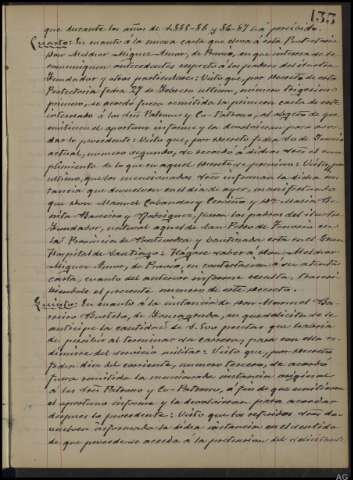 133
que durante los años de 1885-86 y 86-87 há percibido.
Cuarto: En cuanto á la nueva carta que eleva á esta
Don Melchor Miguez Amor, de Pravio, en que interesa se le
comuniquen antecedentes respecto á los padres del ilustre
Fundador y otros particulares: Visto que, por Decreto de esta
Protectoria fecha 27 de Febrero último, número trigésimo
primero, se acordó fuera remitida la primera carta de este
interesado á los dos Patronos y Co-Patrono, al objeto de que
emitiesen el oportuno informe y la devolvieran para acor-
dar lo procedente: Visto que, por Decreto fecha de
actual, número segundo, se recordó á dichos dos el cum-
plimiento de lo que en aquel Decreto, se previene: Visto, por
último, que los mencionados dos informan la dicha ins-
tancia que devuelven en el día de ayer, manifestando
que Don Manuel Cabanelas y Doña María Be-
nita Barreira y Rodriguez, fueron los padres del ilustre
Fundador, natural aquel de San Pedro de
en la Provincia de Pontevedra y bautizada esta en el Gran
Hospital de Santiago: Hágase saber á Don Melchor
Miguez Amor, de Pravio, en contestación á su atenta
carta, cuanto del anterior informe resulta, trasmi-
tiéndole el presente número de este Decreto.
Quinto: En cuanto á la instancia de Don Manuel Ba-
rreiro Botelho, de Berezagontia, en que solicita se le
anticipe la cantidad de 1.500 pesetas que habría
de percibir al terminar la carrera, para con ella re-
dimirse del servicio militar: Visto que, por Decreto
fecha diez del corriente, número tercero, se acordó
fuera remitida la mencionada instancia original
á los dos Patronos y Co-Patrono, á fin de que emitieran
el oportuno informe y la devolvieran para acordar
después lo procedente: Visto que los referidos dos de-
vuelven informada la dicha instancia en el sentido
de que procede se acceda á la pretensión del solicitante
AG